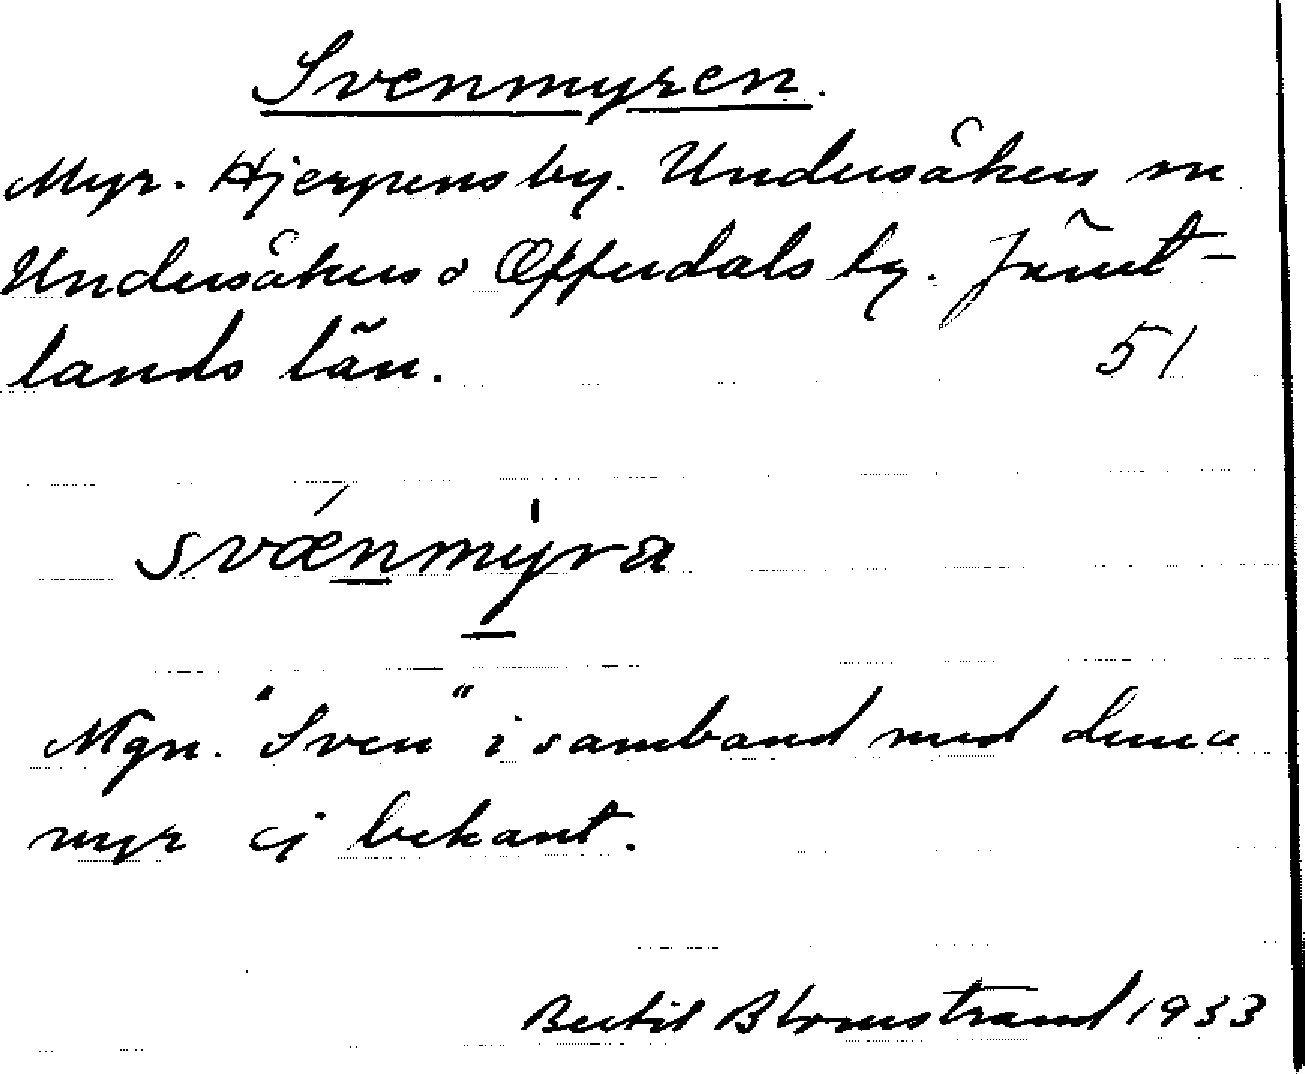 Svenmyren.
Myr. Hjerpens by. Undersåkers sn
Undersåkers o Offerdals tg. Jämt-
lands län.
51
svǽnmyra
Mgn. "Sven" i samband med denna
myr ej bekant.
Bertil Blomstrand 1933